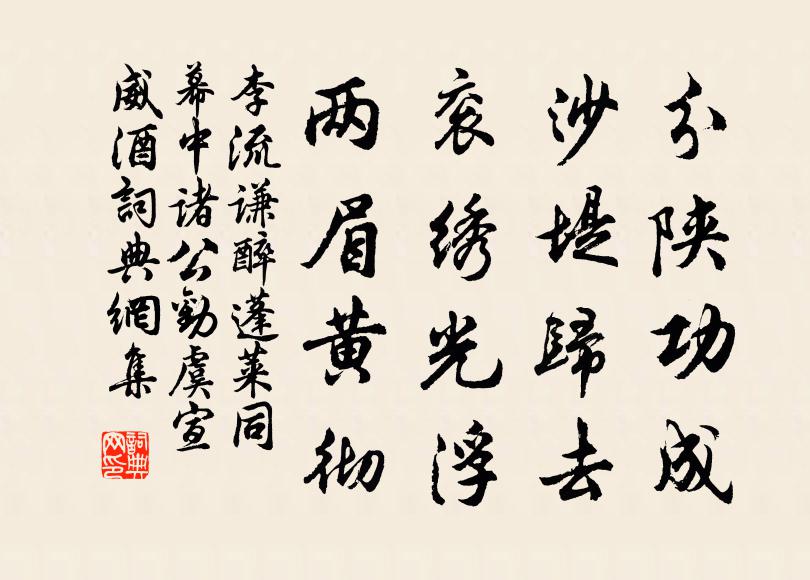 分陕功成
沙堤歸去
衮绣光浮
两眉黄彻
李流谦醉蓬莱同
幕中诸公劝虞宣
威酒詞典網集
詞典
网印